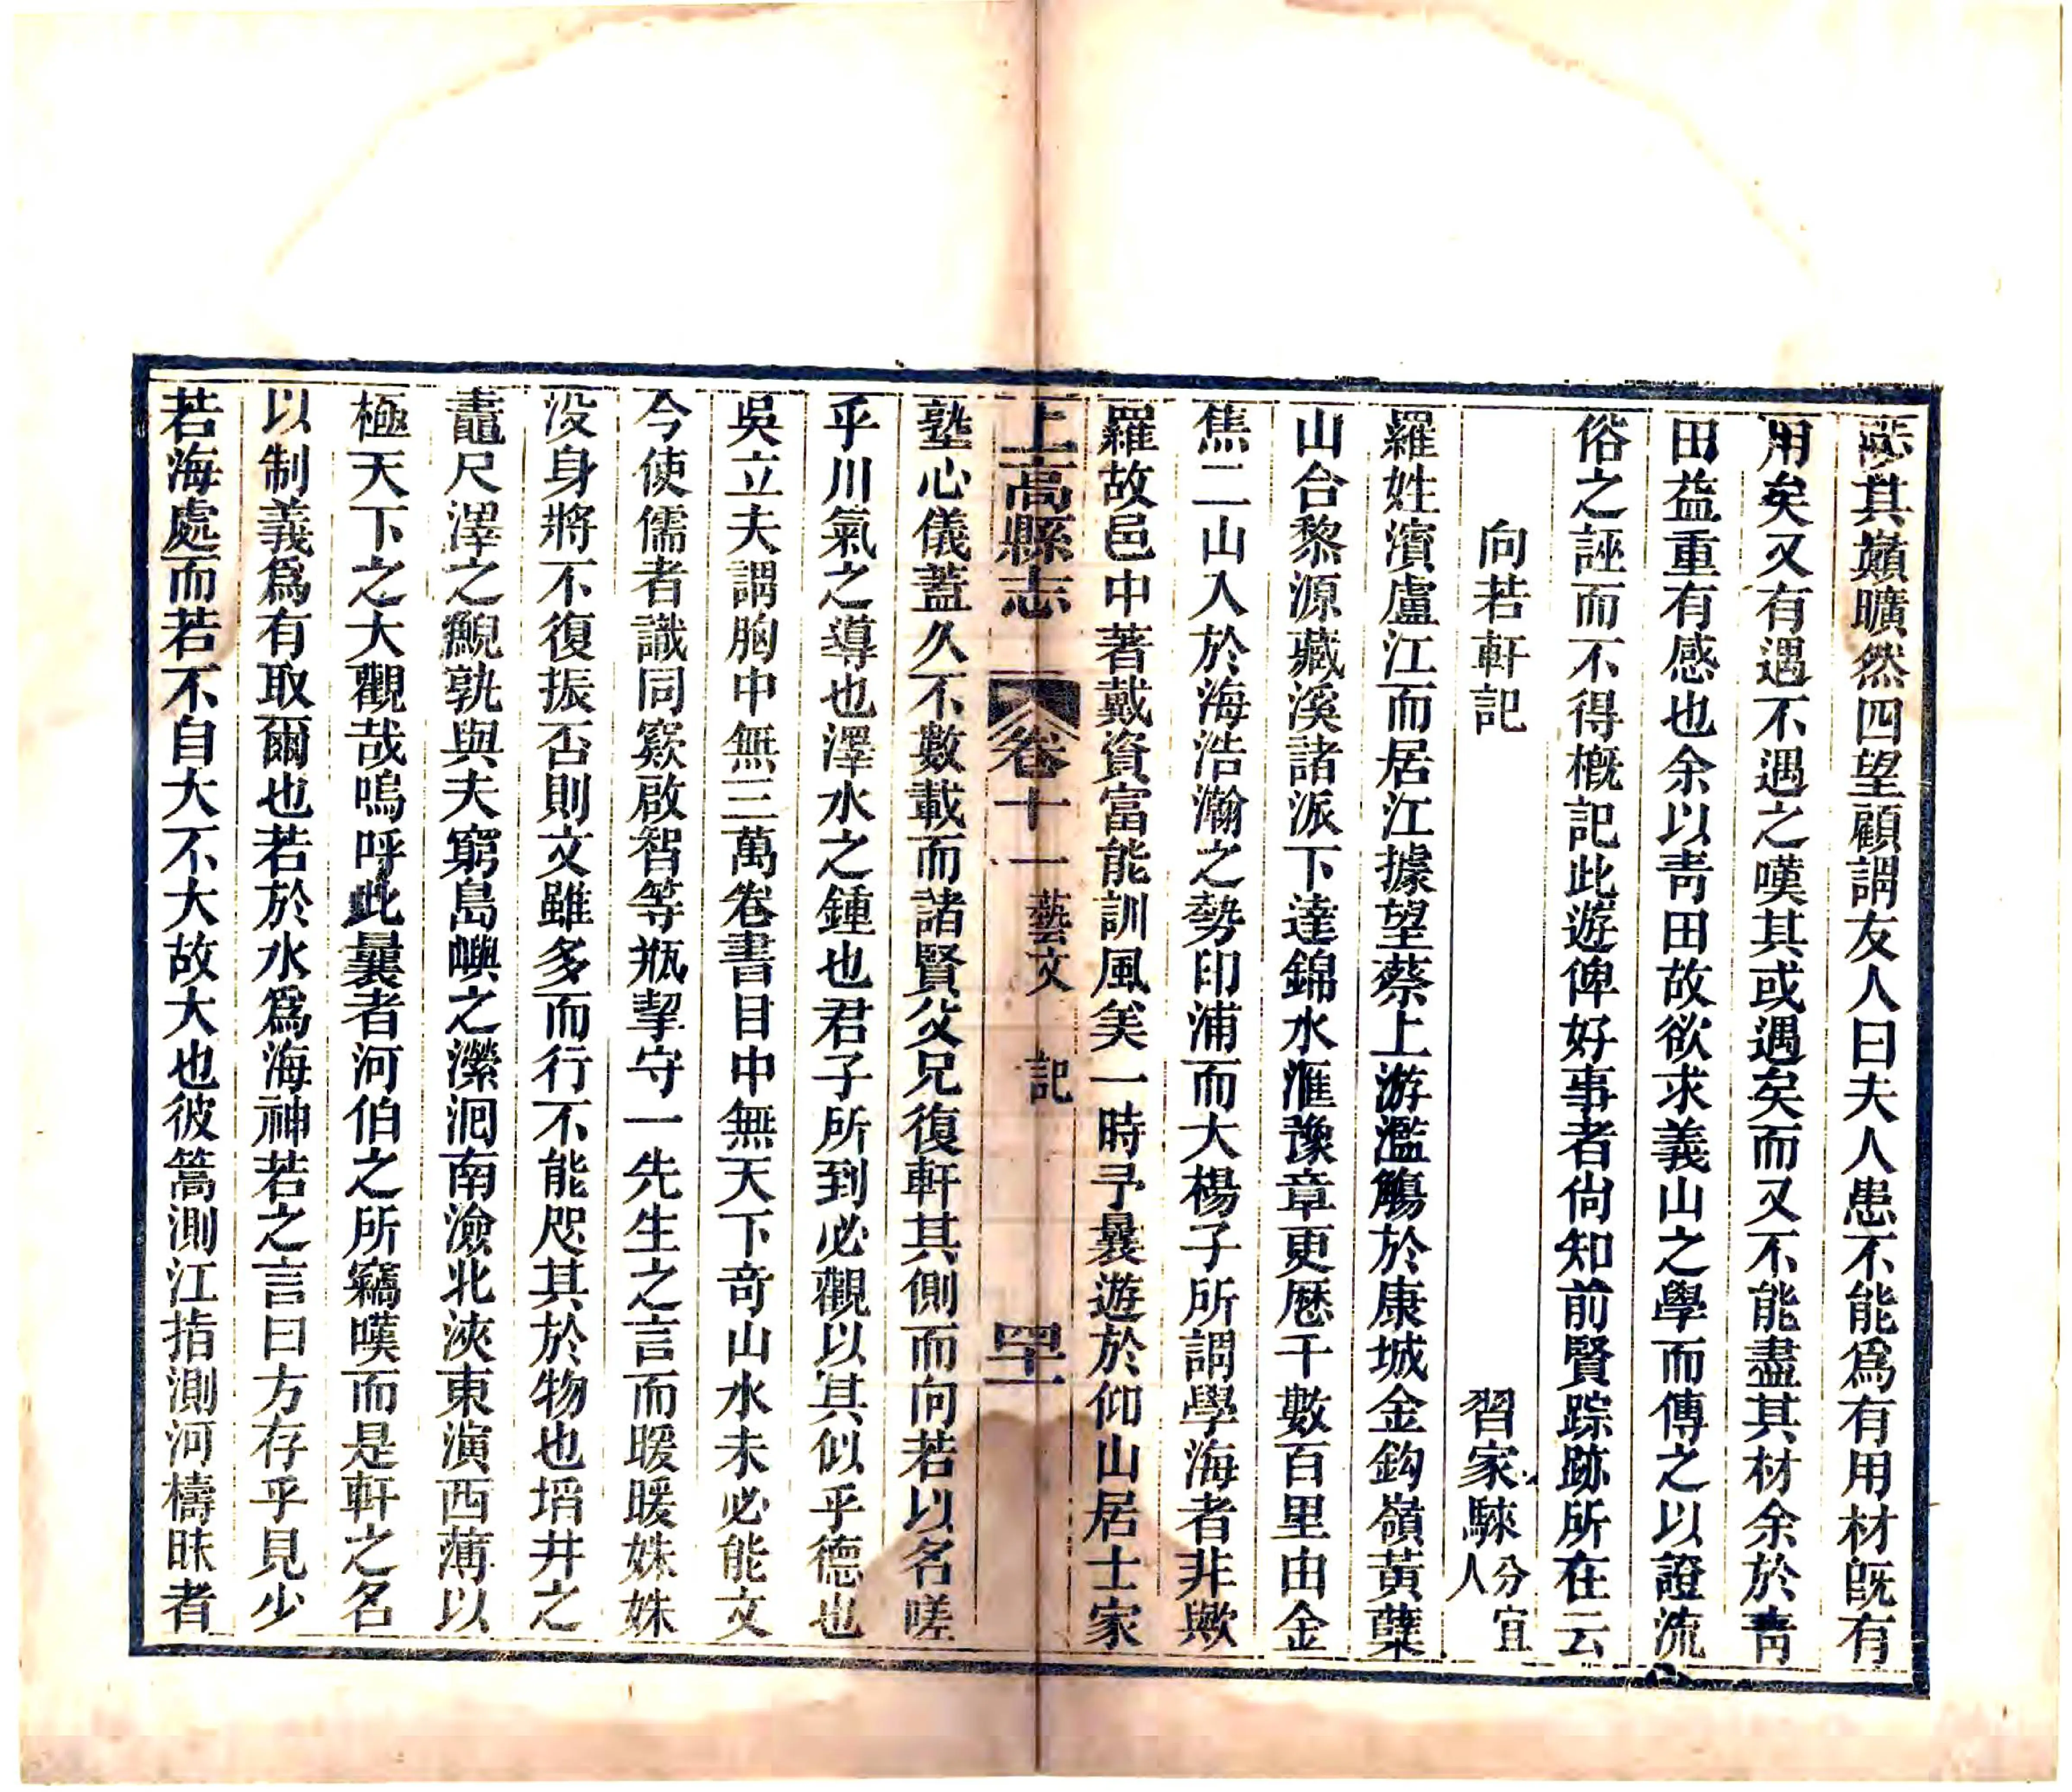 其巔曠然四望顧謂友人曰夫人患不能爲有用材旣有
用矣又有遇不遇之嘆其或遇矣而又不能盡其材余於靑
田益重有感也余以靑田故欲求義山之學而傳之以證流
俗之誣而不得槪記此遊俾好事者尙知前賢踪跡所在云
向若軒記
習家騋分宜人
羅姓濱盧江而居江據望蔡上游濫觴於康城金鈎嶺黃蘗
山合黎源藏溪諸派下達錦水滙豫章更歷千數百里由金
焦二山入於海浩瀚之勢印浦而大楊子所謂學海者非歟
羅故邑中著戴資富能訓風美一時予曩遊於仰山居士家
上高縣志
卷十一
藝文
記
四十一
塾心儀蓋久不數載而諸賢父兄復軒其側而向若以名嗟
乎川氣之導也澤水之鍾也君子所到必觀以其似乎德也
吳立夫謂胸中無三萬卷書目中無天下奇山水未必能文
今使儒者識同窾啟智等瓶挈守一先生之言而暖暖姝姝
沒身將不復振否則文雖多而行不能咫其於物也埳井之
鼃尺澤之鯢孰與夫窮島嶼之瀠洄南澰北浹東演西薄以
極天下之大觀哉嗚呼此曩者河伯之所竊嘆而是軒之名
以制義爲有取爾也若於水爲海神若之言曰方存乎見少
若海處而若不自大不大故大也彼篙測江指測河檮昧者